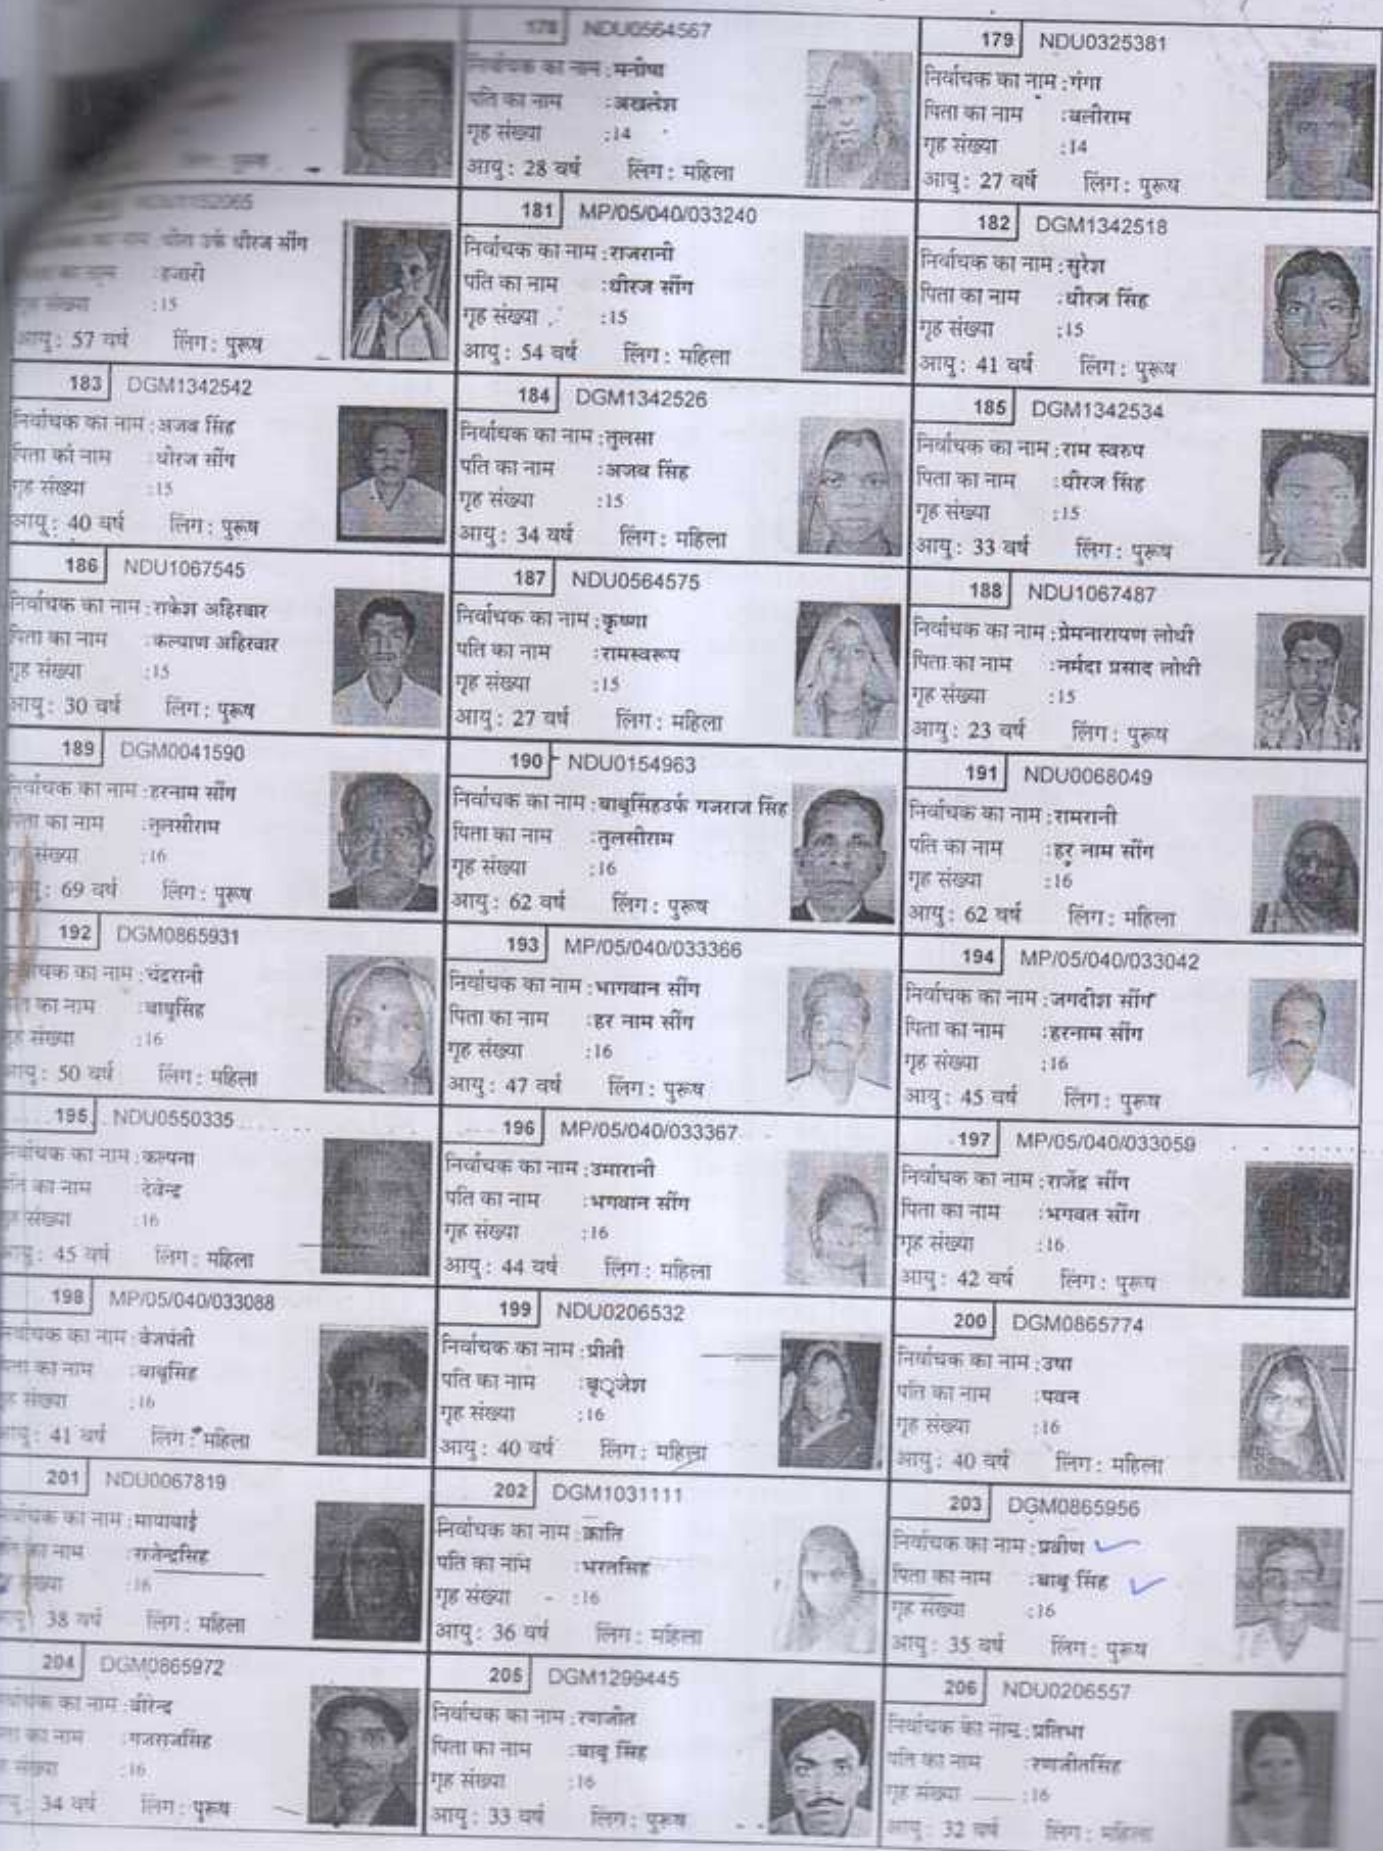 178 NDU0564567
निर्वाचक का नाम : मनीषा
पति का नाम : अखलेश
गृह संख्या : 14
आयु : 28 वर्ष लिंग : महिला
179 NDU0325381
निर्वाचक का नाम : गंगा
पिता का नाम : बलीराम
गृह संख्या : 14
आयु : 27 वर्ष लिंग : पुरूष
का नाम उर्फ धीरज सींग
: हजारी
संख्या : 15
आयु : 57 वर्ष लिंग : पुरूष
181 MP/05/040/033240
निर्वाचक का नाम : राजरानी
पति का नाम : धीरज सींग
गृह संख्या : 15
आयु : 54 वर्ष लिंग : महिला
182 DGM1342518
निर्वाचक का नाम : सुरेश
पिता का नाम : धीरज सिंह
गृह संख्या : 15
आयु : 41 वर्ष लिंग : पुरूष
183 DGM1342542
निर्वाचक का नाम : अजब सिंह
पिता का नाम : धीरज सींग
गृह संख्या : 15
आयु : 40 वर्ष लिंग : पुरूष
184 DGM1342526
निर्वाचक का नाम : तुलसा
पति का नाम : अजब सिंह
गृह संख्या : 15
आयु : 34 वर्ष लिंग : महिला
185 DGM1342534
निर्वाचक का नाम : राम स्वरुप
पिता का नाम : धीरज सिंह
गृह संख्या : 15
आयु : 33 वर्ष लिंग : पुरूष
186 NDU1067545
निर्वाचक का नाम : राकेश अहिरवार
पिता का नाम : कल्याण अहिरवार
गृह संख्या : 15
आयु : 30 वर्ष लिंग : पुरूष
187 NDU0564575
निर्वाचक का नाम : कृष्णा
पति का नाम : रामस्वरूप
गृह संख्या : 15
आयु : 27 वर्ष लिंग : महिला
188 NDU1067487
निर्वाचक का नाम : प्रेमनारायण लोधी
पिता का नाम : नर्मदा प्रसाद लोधी
गृह संख्या : 15
आयु : 23 वर्ष लिंग : पुरूष
189 DGM0041590
निर्वाचक का नाम : हरनाम सींग
पिता का नाम : तुलसीराम
गृह संख्या : 16
आयु : 69 वर्ष लिंग : पुरूष
190 NDU0154963
निर्वाचक का नाम : बाबूसिंहउर्फ गजराज सिंह
पिता का नाम : तुलसीराम
गृह संख्या : 16
आयु : 62 वर्ष लिंग : पुरूष
191 NDU0068049
निर्वाचक का नाम : रामरानी
पति का नाम : हर नाम सींग
गृह संख्या : 16
आयु : 62 वर्ष लिंग : महिला
192 DGM0865931
निर्वाचक का नाम : चंद्ररानी
पति का नाम : बाबूसिंह
गृह संख्या : 16
आयु : 50 वर्ष लिंग : महिला
193 MP/05/040/033366
निर्वाचक का नाम : भागवान सींग
पिता का नाम : हर नाम सींग
गृह संख्या : 16
आयु : 47 वर्ष लिंग : पुरूष
194 MP/05/040/033042
निर्वाचक का नाम : जगदीश सींग
पिता का नाम : हरनाम सींग
गृह संख्या : 16
आयु : 45 वर्ष लिंग : पुरूष
195 NDU0550335
निर्वाचक का नाम : कल्पना
पति का नाम देवेन्द्र
गृह संख्या : 16
आयु : 45 वर्ष लिंग : महिला
196 MP/05/040/033367
निर्वाचक का नाम : उमारानी
पति का नाम : भगवान सींग
गृह संख्या : 16
आयु : 44 वर्ष लिंग : महिला
197 MP/05/040/033059
निर्वाचक का नाम : राजेंद्र सींग
पिता का नाम : भगवत सींग
गृह संख्या : 16
आयु : 42 वर्ष लिंग : पुरूष
198 MP/05/040/033088
निर्वाचक का नाम : वेजपंती
पिता का नाम : बाबूसिह
गृह संख्या : 16
आयु : 41 वर्ष लिंग : महिला
199 NDU0206532
निर्वाचक का नाम : प्रीती
पति का नाम : बृ्जेश
गृह संख्या : 16
आयु : 40 वर्ष लिंग : महिला
200 DGM0865774
निर्वाचक का नाम : उषा
पति का नाम : पवन
गृह संख्या : 16
आयु : 40 वर्ष लिंग : महिला
201 NDU0067819
निर्वाचक का नाम : मायाबाई
पति का नाम : राजेन्द्रसिह
गृह संख्या : 16
आयु : 38 वर्ष लिंग : महिला
202 DGM1031111
निर्वाचक का नाम : क्राति
पति का नाम : भरतसिह
गृह संख्या : 16
आयु : 36 वर्ष लिंग : महिला
203 DGM0865956
निर्वाचक का नाम : प्रवीण
पिता का नाम : बाबू सिंह
गृह संख्या : 16
आयु : 35 वर्ष लिंग : पुरूष
204 DGM0865972
निर्वाचक का नाम : वीरेन्द्र
पिता का नाम : गजराजसिंह
गृह संख्या : 16
आयु : 34 वर्ष लिंग : पुरूष
205 DGM1299445
निर्वाचक का नाम : रणजीत
पिता का नाम : बाबू सिंह
गृह संख्या : 16
आयु : 33 वर्ष लिंग : पुरूष
206 NDU0206557
निर्वाचक का नाम : प्रतिभा
पति का नाम : रणजीतसिंह
गृह संख्या : 16
आयु : 32 वर्ष लिंग : महिला